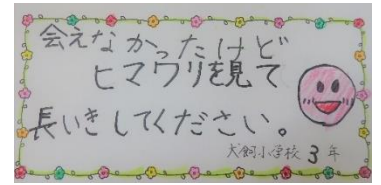 会えなかったけど
ヒマワリを見て
長いきしてください。
犬飼小学校 3年